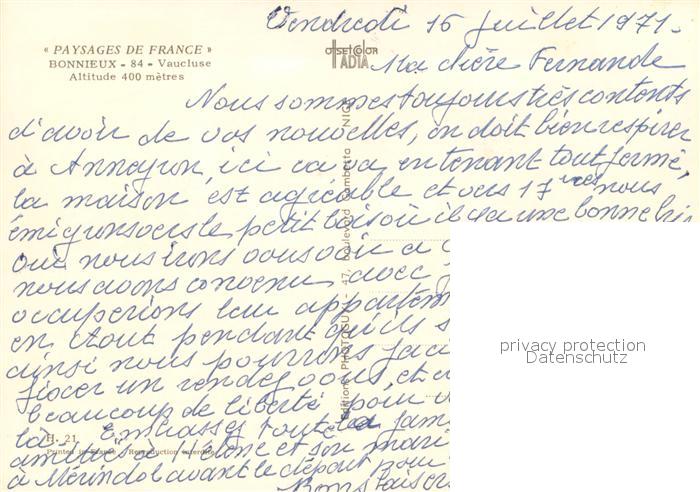 Vendredi 16 juillet 1971.
« PAYSAGES DE FRANCE »
BONNIEUX - 84 - Vaucluse
Altitude 400 mètres
OFFSET COLOR
IADIA
Ma chère Fernande
Nous sommes toujours très contents
d'avoir de vos nouvelles, on doit bien respirer
à Anneyron, ici ca va en tenant tout fermé,
la maison est agréable et vers 17 hres nous
émigrons vers le petit bois où il y a une bonne
que nous irons vous voir à
nous avons convenu avec
occuperions leur appartem
en août pendant qu'ils s
ainsi nous pourrons faci
fixer un rendez vous, et
beaucoup de liberté pour
là. Embrasses toute la fam
amitiés à Hélène et son mari
à Mérindol avant le départ pour
Bons baisers
Editions PHOTOGUY - 47, boulevard Gambetta - NIC
H. 21
Printed in France Reproduction interdite
privacy protection
Datenschutz